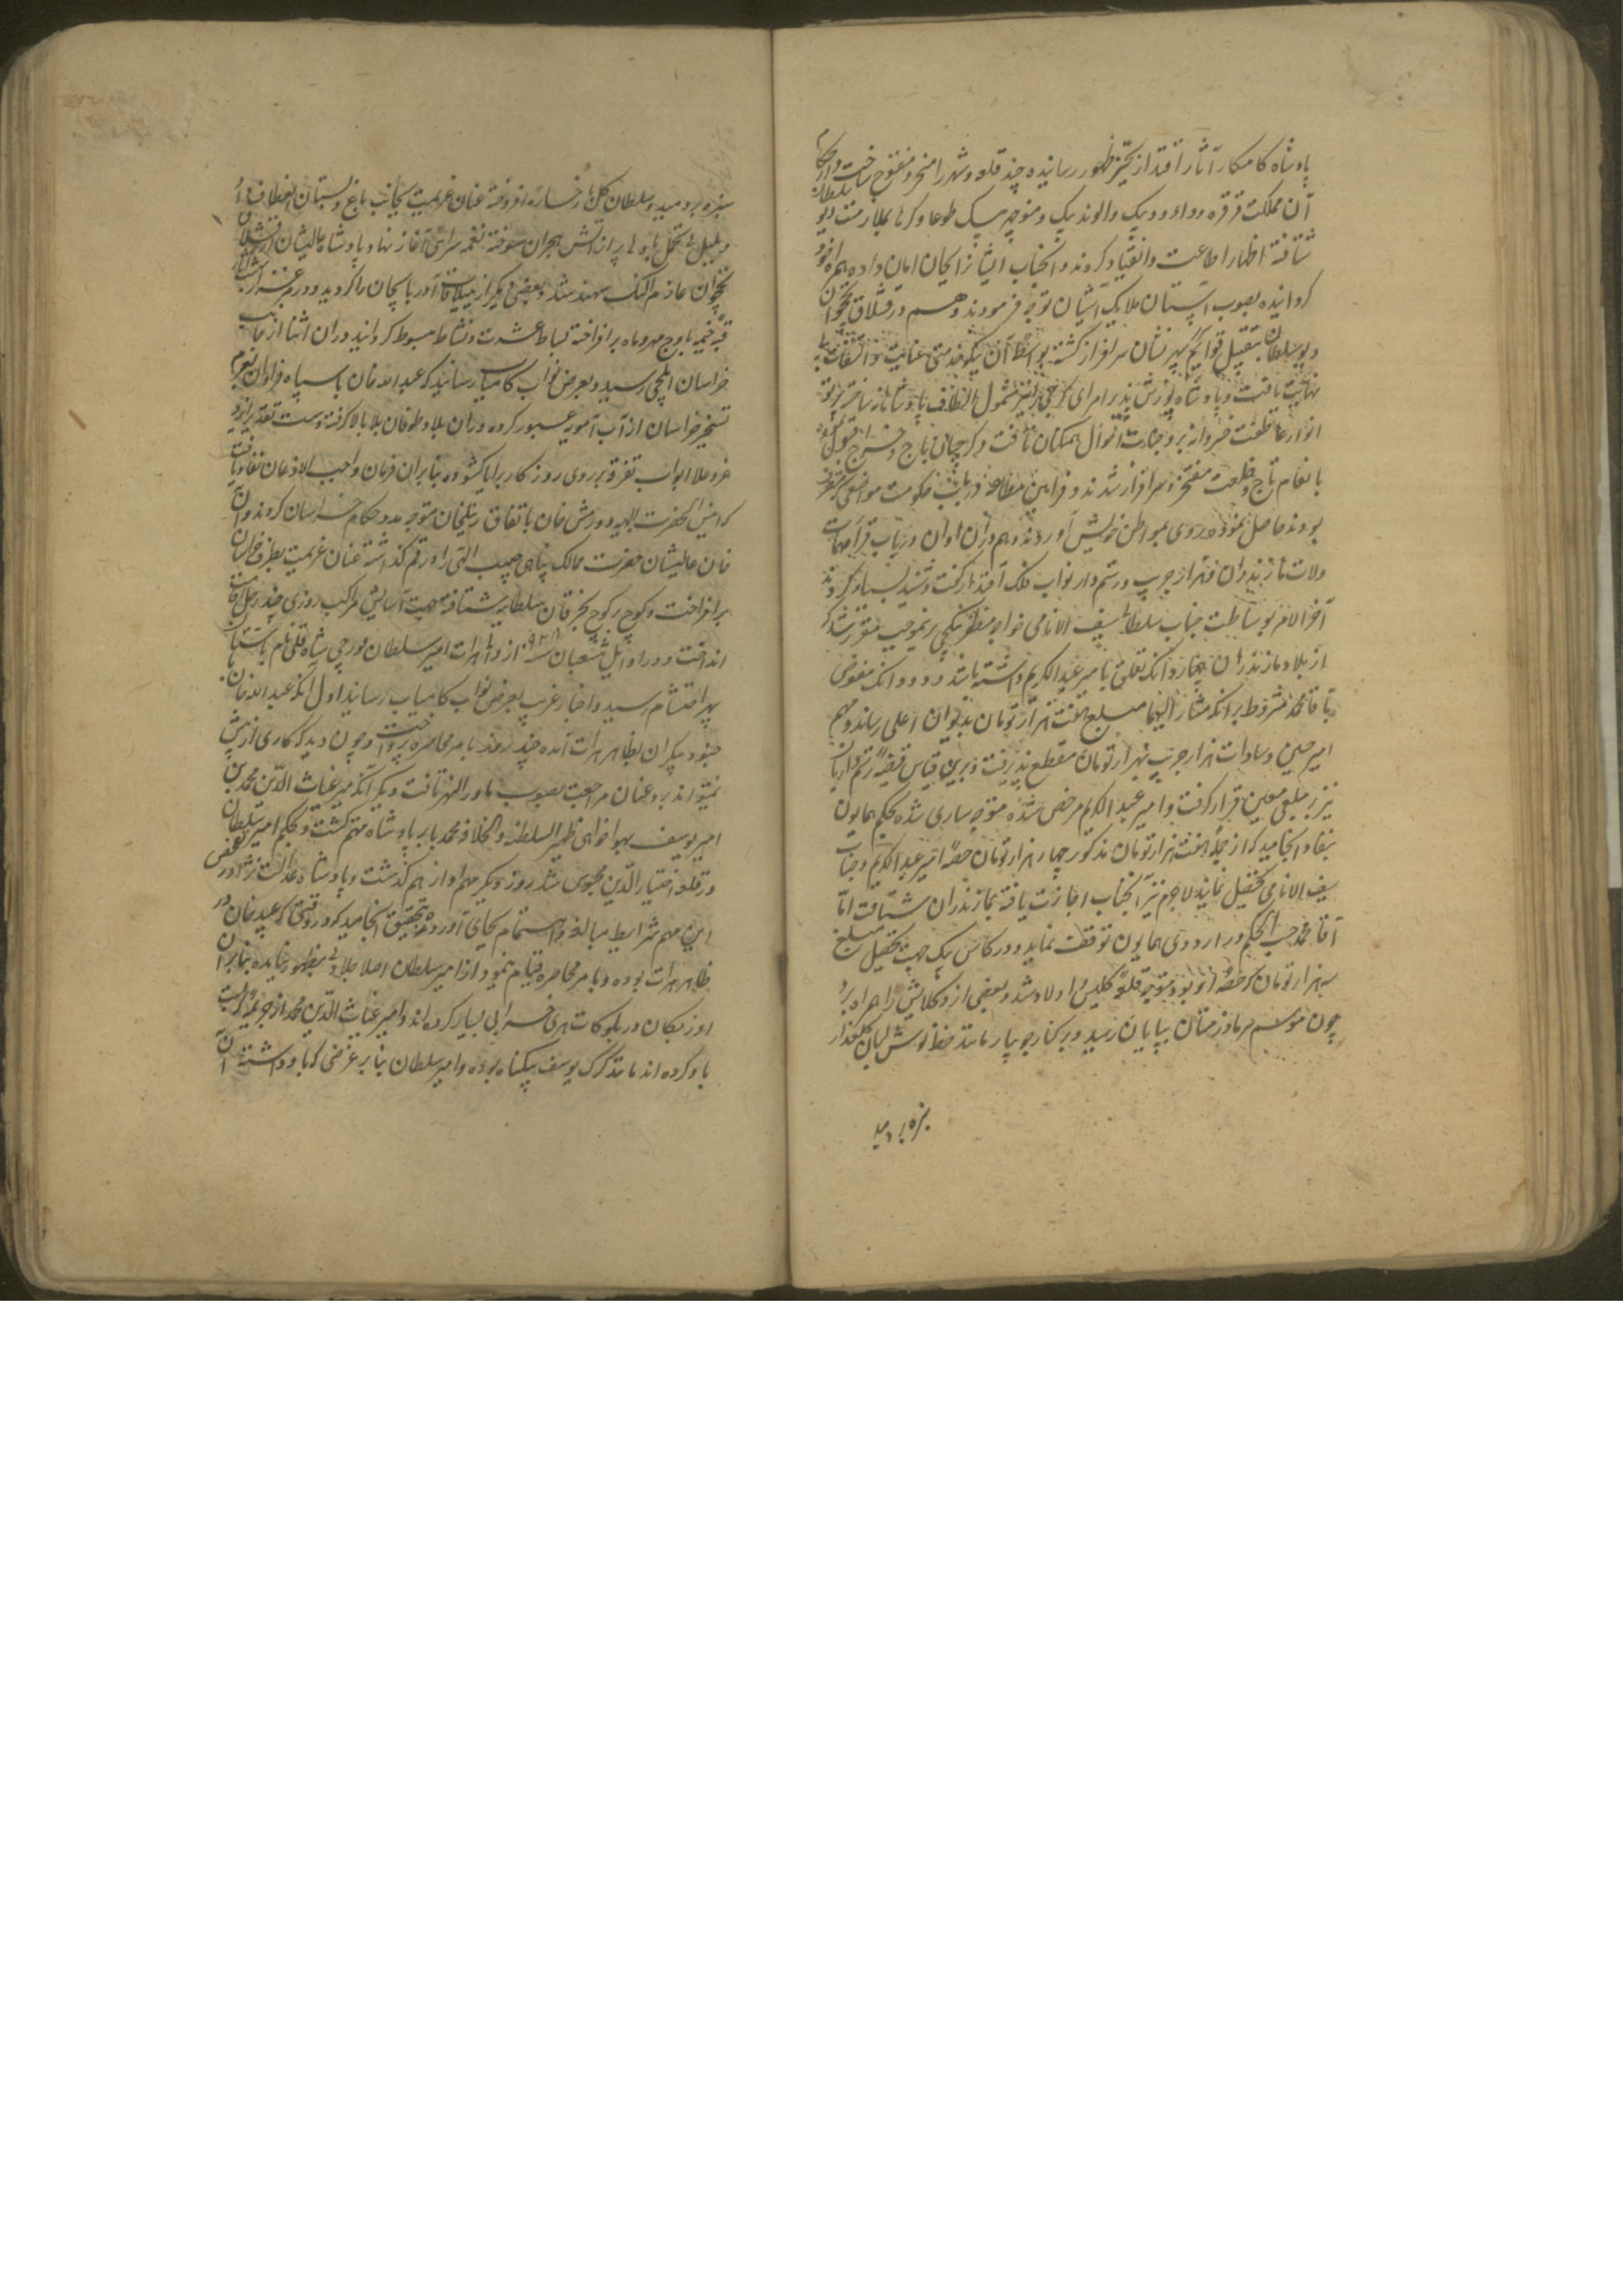 پادشاه کامکار آثار اقتدار بحیز ظهور رسانیده چند قلعه و شهر را مسخر و مفتوح ساخت و حکام
آن مملکت قرقره و داود بیک و الوند بیک و منوچهر بیک طوعا و کرها بملازمت دیو سلطان
شتافته اظهار اطاعت و انقیاد کردند و آنجناب ایشانرا بجان امان داده همراه خود
کردانیده بصوب آستان ملایک آشیان توجه فرمودند و هم در قشلاق نخجوان
دیو سلطان بتقبیل قوایم سپهر نشان سرافراز کشته بواسطهٔ آن نیکو خدمتی عنایت و التفات بی
نهایت یافت و پادشاه پوزش پذیر امرای کرجی را نیز مشمول الطاف پادشاهانه ساخته پرتو
انوار عاطفت خسروانه بر وجنات احوال همکنان تافت و کرجیان باج و خراج قبول نموده
بانعام تاج و خلعت مفتخر و سرافراز شدند و فرامین مطاعه در باب حکومت مواضعی که متصرف
بودند حاصل نموده روی بمواطن خویش آوردند و هم در آن اوان در باب قرار مهمات
ولات مازندران و هزار جریب و رستمدار نواب فلک اقتدار کفت و شنید بسیار کردند
آخر الامر بوساطت جناب سلطانی سیف الانامی خواجه مظفر بتکچی برینموجب مقرر شد که
از بلاد مازندران چهار دانک تعلق بامیر عبد الکریم داشته باشد و دو دانک مفوض
بآقا محمد مشروط برانکه مشار الیهما مبلغ هفت هزار تومان بدیوان اعلی رسانند و مهم
امیر حسین و سادات هزار جریب بهزار تومان مقطع پذیرفت و برین قیاس قضیهٔ رستمداریان
نیز بر مبلغی معین قرار کرفت و امیر عبد الکریم مرخص شده متوجه ساری شد و حکم همایون
بنفاذ انجامید که از جمله هفت هزار تومان مذکور چهار هزار تومان حصهٔ امیر عبد الکریم و جناب
سیف الانامی تحصیل نمایند لاجرم نیز آنجناب اجازت یافته بمازندران شتافت اما
آقا محمد حسب الحکم در اردوی همایون توقف نماید و درکاس بیک جهت تحصیل مبلغ
سه هزار تومان که حصهٔ او بود متوجه قلعهٔ کلیس و اولاد شد و بعضی از وکلایش را همراه برد
چون موسم سرما و زمستان بپایان رسید و بر کنار جویبار مانند خط نوش لبان کلعذار
سبزه بردمید
سبزه بردمید و سلطان کل با رخسارهٔ افروخته عنان عزیمت بجانب باغ و بستان انعطاف داد
و بلبل بی تحمل با دلها پر از آتش هجران سوخته نغمه سرائی آغاز نهاد پادشاه عالیشان از قشلاق
نخجوان عازم النک سهند شد و بعضی دیکر از ییلاقات آذربایجان را کردید و در هر منزل
قبهٔ خیمه باوج مهر و ماه برافراخته بساط عشرت و نشاط مبسوط کردانید در آن اثنا از جانب
خراسان ایلچی رسید و بعرض نواب کامیاب رسانید که عبید الله خان با سپاه فراوان بعزم
تسخیر خراسان از آب آمویه عبور کرده و در آن بلاد طوفان بلا بالا کرفته و دست تقدیر ایزد
عز و علا ابواب تفرقه بر روی روزکار برایا کشوده بنابر آن فرمان واجب الاذعان نفاذ یافت
که امیر الحضرت العلیه دورمش خان باتفاق زینلخان متوجه مدد حکام خراسان کردند و آن
خان عالیشان حضرت ممالک پناهی حبیب اللهی را در قم کذاشته عنان عزیمت بطرف خراسان
برافراخت و کوچ بر کوچ بخرقان سلطانیه شتافته جهت آسایش مراکب روزی چند رحل اقامت
انداخت و در اوایل شعبان سنه ۹۲۸ از دار هرات امیر سلطان قورچی شاه قلی نام باستان
سپهر احتشام رسید و اخبار غریب بعرض نواب کامیاب رسانید اول آنکه عبید الله خان با
جنود بیکران بظاهر هرات آمده چند روز بامر محاصره پرداخت و چون دید که کاری از پیش
نمیتواند برد عنان مراجعت بصوب ماوراء النهر تافت و دیکر آنکه میر غیاث الدین محمد بن
امیر یوسف بهواخواهی ظهیر السلطنه و الخلافه محمد بابر پادشاه متهم کشت و بحکم امیر سلطان
در قلعه اختیار الدین محبوس شد روز دیکر مهم او از هم کذشت و پادشاه عدالت نژاد در تفحص
این مهم شرایط مبالغه و اهتمام بجای آورده بتحقیق انجامید که در وقتی که عبید خان در
ظاهر هرات بوده و بامر محاصره قیام نمود از امیر سلطان اصلا جلادتی بظهور نیامده بنابر آن
اوزبکان در بلوکات هری خرابی بسیار کرده اند و امیر غیاث الدین محمد از جریمهٔ که نسبت
باو کرده اند مانند کرک یوسف بیکناه بوده و امیر سلطان بنابر غرضی که با او داشته آن